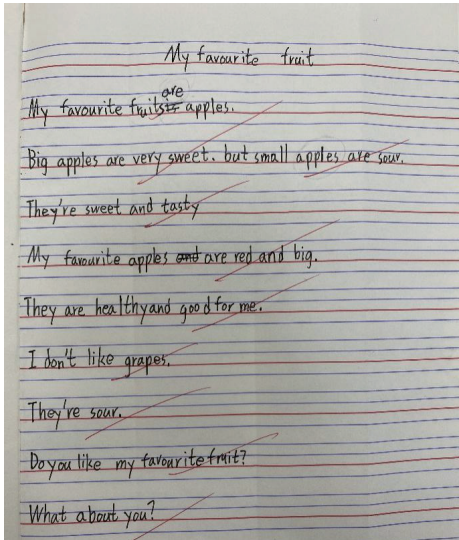 My favourite fruit
My favourite fruits are apples.
Big apples are very sweet. but small apples are sour.
They're sweet and tasty
My favourite apples and are red and big.
They are healthy and good for me.
I don't like grapes.
They're sour.
Do you like my favourite fruit?
What about you?